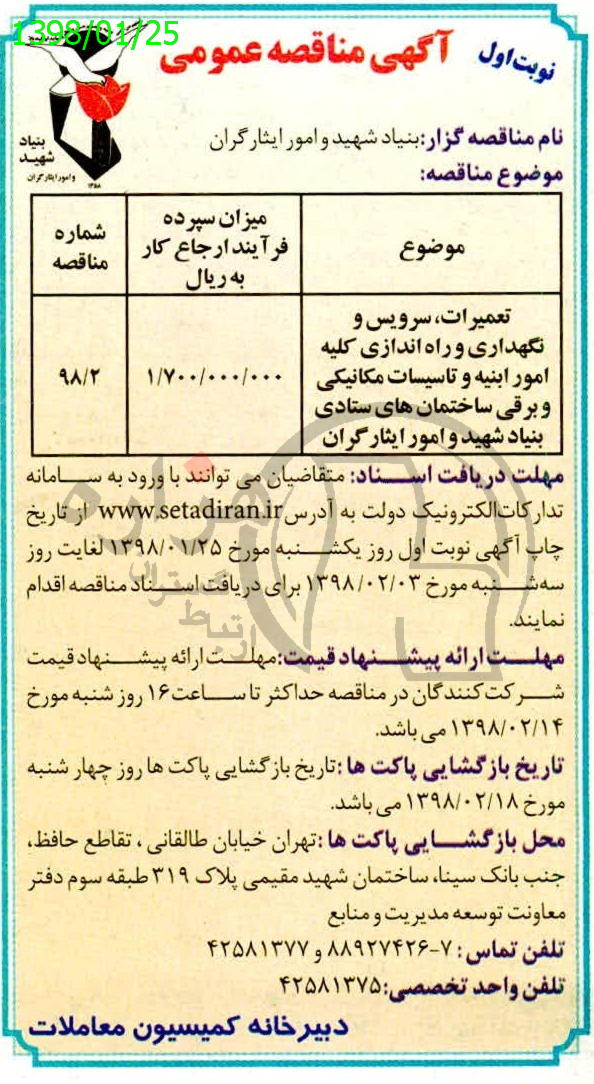 1398/01/25
نوبت اول
آگهی مناقصه عمومی
بنیاد
شهید
و امور ایثارگران
۱۳۵۸
نام مناقصه گزار: بنیاد شهید و امور ایثارگران
موضوع مناقصه:
موضوع
میزان سپرده
فرآیند ارجاع کار
به ریال
شماره
مناقصه
تعمیرات، سرویس و
نگهداری و راه اندازی کلیه
امور ابنیه و تاسیسات مکانیکی
و برقی ساختمان های ستادی
بنیاد شهید و امور ایثارگران
۱/۷۰۰/۰۰۰/۰۰۰
۹۸/۲
مهلت دریافت اسناد: متقاضیان می توانند با ورود به سامانه
تدارکات الکترونیک دولت به آدرس www.setadiran.ir از تاریخ
چاپ آگهی نوبت اول روز یکشنبه مورخ ۱۳۹۸/۰۱/۲۵ لغایت روز
سه شنبه مورخ ۱۳۹۸/۰۲/۰۳ برای دریافت اسناد مناقصه اقدام
نمایند.
مهلت ارائه پیشنهاد قیمت: مهلت ارائه پیشنهاد قیمت
شرکت کنندگان در مناقصه حداکثر تا ساعت ۱۶ روز شنبه مورخ
۱۳۹۸/۰۲/۱۴ می باشد.
تاریخ بازگشایی پاکت ها: تاریخ بازگشایی پاکت ها روز چهار شنبه
مورخ ۱۳۹۸/۰۲/۱۸ می باشد.
محل بازگشایی پاکت ها: تهران خیابان طالقانی، تقاطع حافظ،
جنب بانک سینا، ساختمان شهید مقیمی پلاک ۳۱۹ طبقه سوم دفتر
معاونت توسعه مدیریت و منابع
تلفن تماس: ۷-۸۸۹۲۷۴۲۶ و ۴۲۵۸۱۳۷۷
تلفن واحد تخصصی: ۴۲۵۸۱۳۷۵
دبیرخانه کمیسیون معاملات
هزاره
گسترش
ارتباط